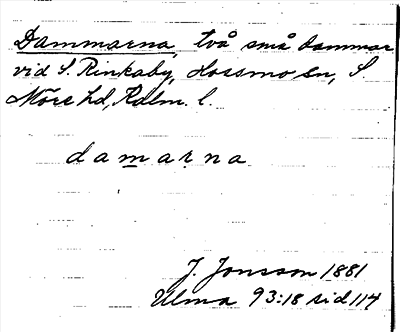 Dammarna, två små dammar
vid S. Rinkaby, Hossmo sn, S.
Möre hd, Kalm. l.
damarna
J. Jonsson 1881
Ulma 93:18 sid 114